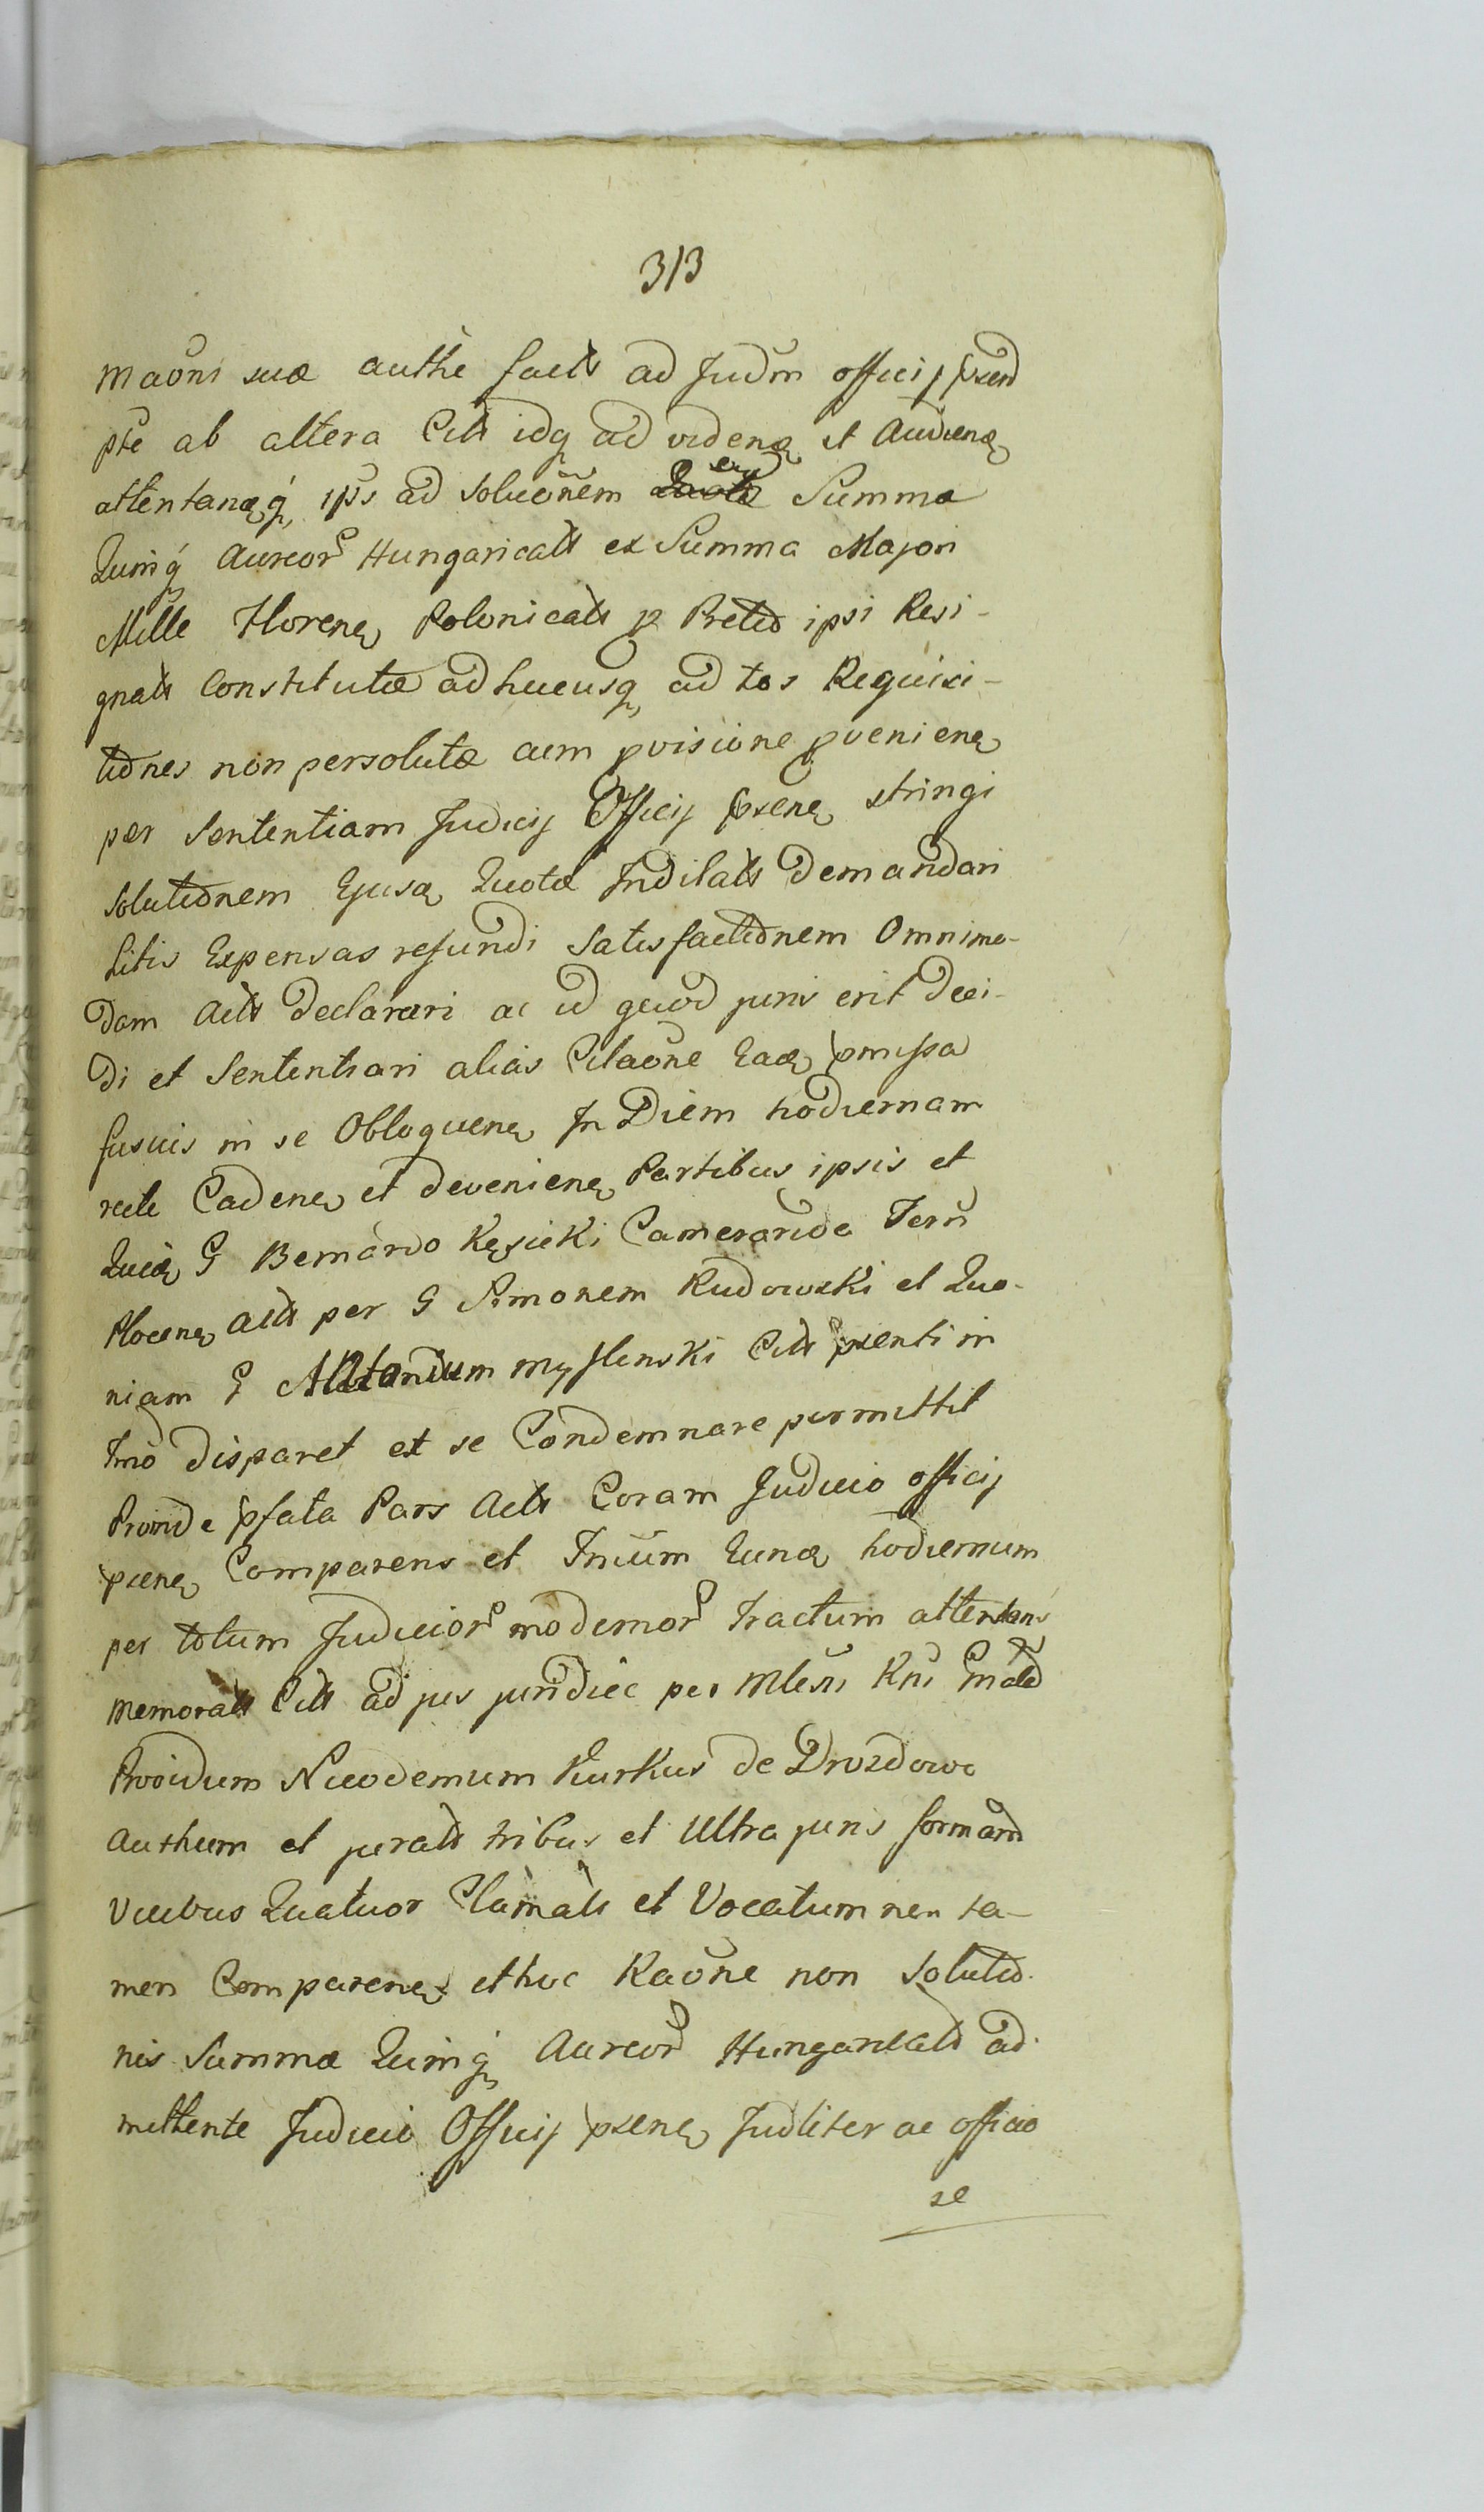 313
Maõni suæ authẽ factt ad Judm officij psend
pte ab altera Citt idq ad videnq et Audienq
attentanqq ips ad soluõnem Summæ
Quinq Aureor Hungaricalt ex Summa Majori
Mille Florenq Polonicalt p Pretio ipsi Resi-
gnatt Constitutæ ad hucusq ad tos Requisi-
tiones non persolutæ cum pvisione pvenienq
per Sententiam Judicij Officij psenq stringi
solutionem Ejusq Quotæ Indilatt demandari
Litis Expensas refundi Satisfactionem Omnimo-
dam Actt declarari ac id quod juris erit deci-
di et Sententiari alias Citaõne Eaq pmissa
fusius in se Obloquenq In Diem hodiernam
recte Cadenq et devenienq Partibus ipsis et
Quiq G Bernardo Kęsicki Camerarido Terñ
Plocenq actt per G Simonem Rudowski et Quo-
niam G Antonium Myslenski Citt psenti in
Tmõ disparet et se Condemnare permittit
Proinde pfata Pars Actt Coram Judicio officij
psenq Comparens et Tmum Eunq hodiernum
per totum Judicior modernor tractum attentans
Memoratt Citt ad jus juridice per Mlesñ Rñi Gñalt
Providum Nicodemum Kurkus de Drozdowo
Authum et juratt tribus et Ultra juris formam
Vicibus Quatuor Clamatt et Vocatum non ta-
men Comparenq et hoc Raõne non solutio-
nis Summæ Quinq Aureor Hungaricalt ad-
mittente Judicio Officij psenq Judliter ac officio
se